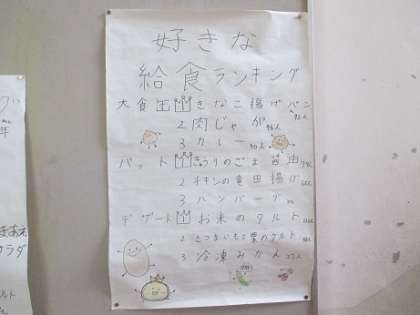 好きな
給食ランキング
大食缶 1 きなこ揚げパン
2 肉じゃが
3 カレー
バット 1 きゅうりのごま醤油
2 チキンの竜田揚げ
3 ハンバーグ
デザート 1 お米のタルト
2 さつまいもと栗のタルト
3 冷凍みかん